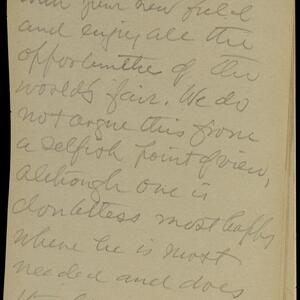 your new field
and enjoy all the
opportunities of the
world's fair. We do
not argue this from
a selfish point of view,
although one is
doubtless most happy
where he is most
needed and does